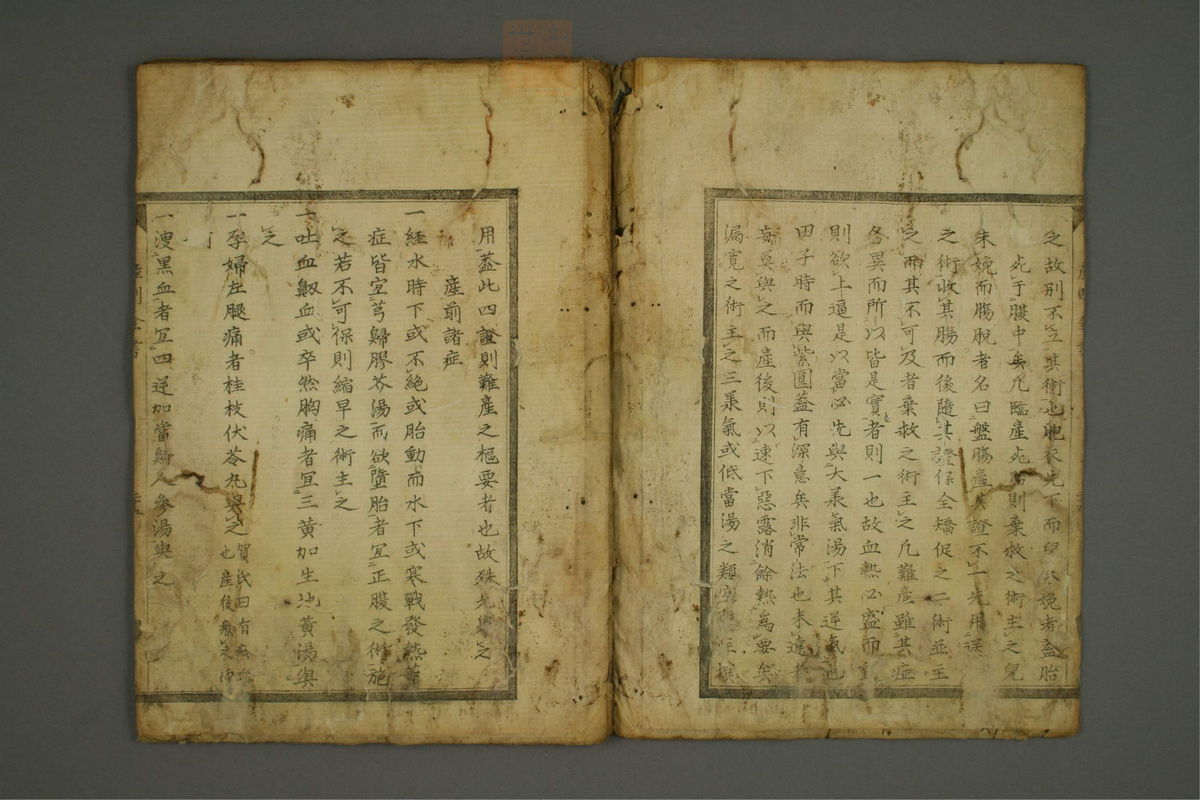 之故別不立其術也胞衣先下而兒不娩者蓋胎
死于腹中矣凡臨産死胎則棄救之術主之兒
未娩而腸脫者名曰盤腸産其證不一先用
之術收其腸而後隨其證保全矯促之二術並主
之而其不可及者棄救之術主之凡難産雖其症
各異而所以皆是實者則一也故血熱必盛而
則欲上逼是以當必先與大承氣湯下其逆氣也
田子時而與紫圓蓋有深意矣非常法也未達
莫與之而産後則以速下惡露消餘熱為要矣
漏寛之術主之三承氣或低當湯之類
用蓋此四證則難産之樞要者也故殊之
産前諸症
一經水時下或不絶或胎動而水下或寒戰發熱等
症皆宜芎歸膠艾湯而欲墮胎者宜正腹之術施
之若不可保則縮早之術主之
一吐血衂血或卒然胸痛者宜三黄加生地黄湯與
之
一孕婦左腿痛者桂枝伏苓丸與之 賀氏曰有
也産後療之而
可
一溲黑血者宜四逆加當歸人參湯與之